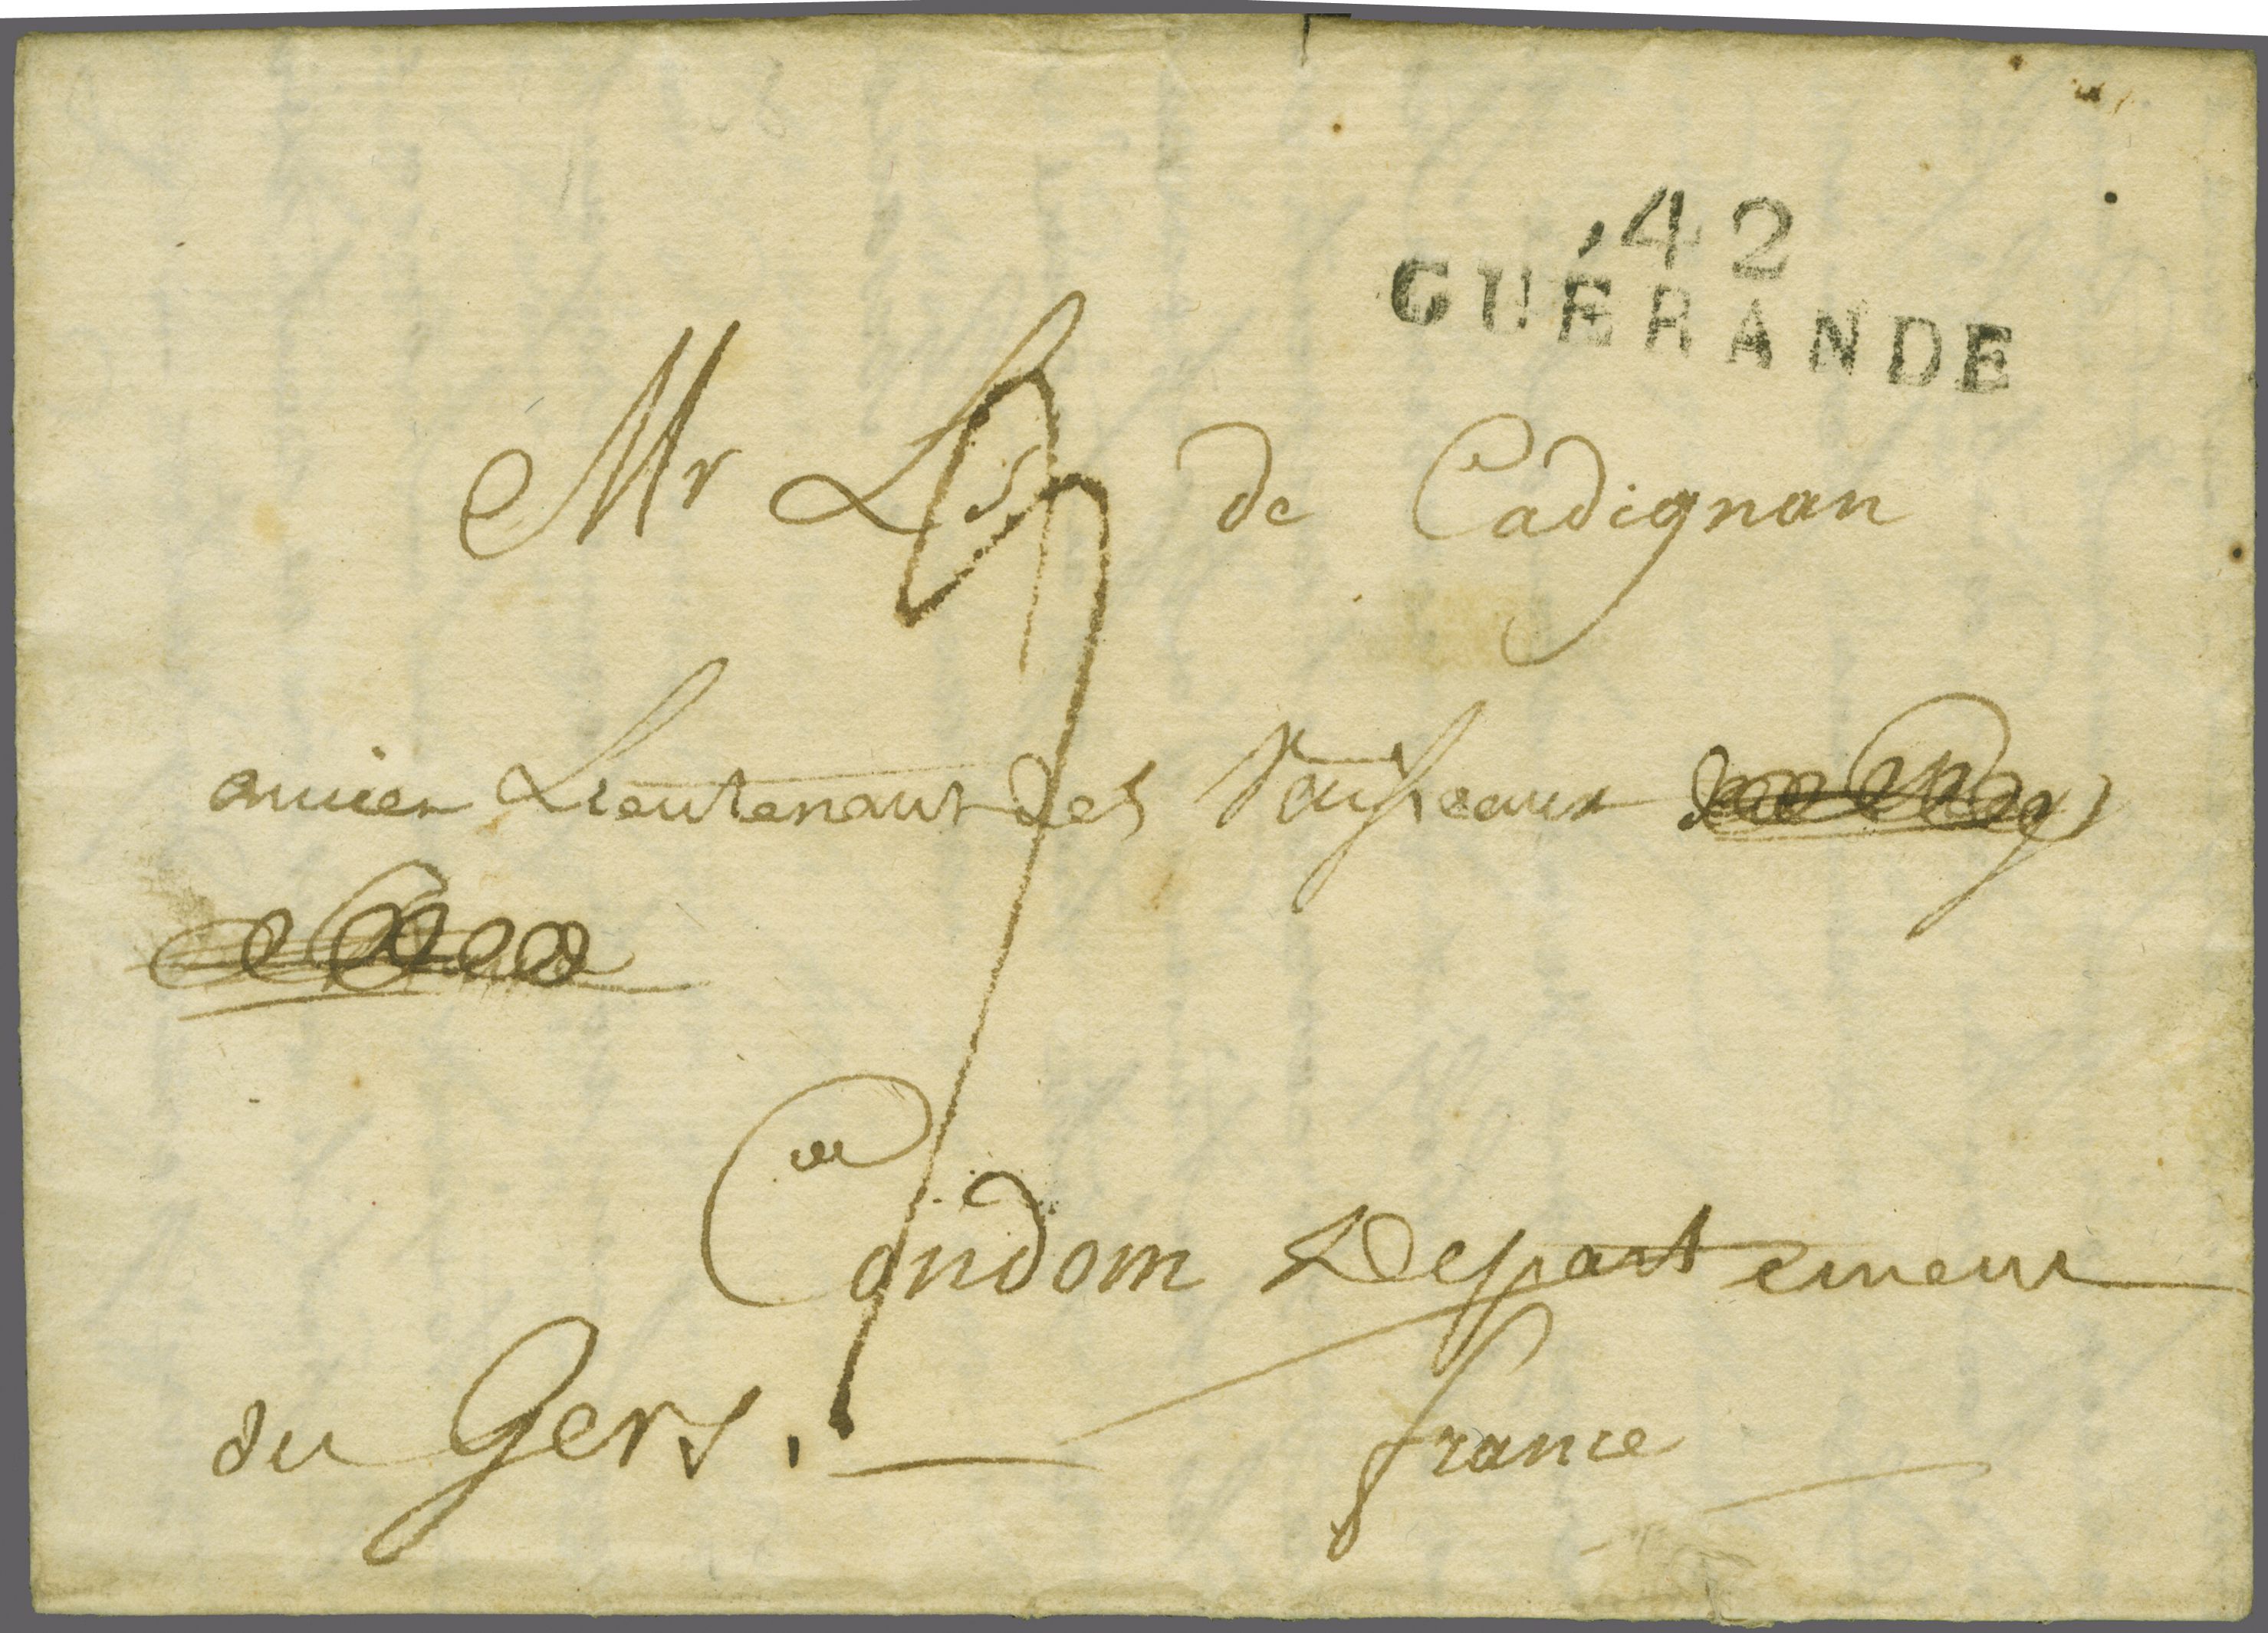 42
GUÉRANDE
Mr de Cadignan
ancien Lieutenant des Vaisseaux
Condom Departement
du Gers.
france